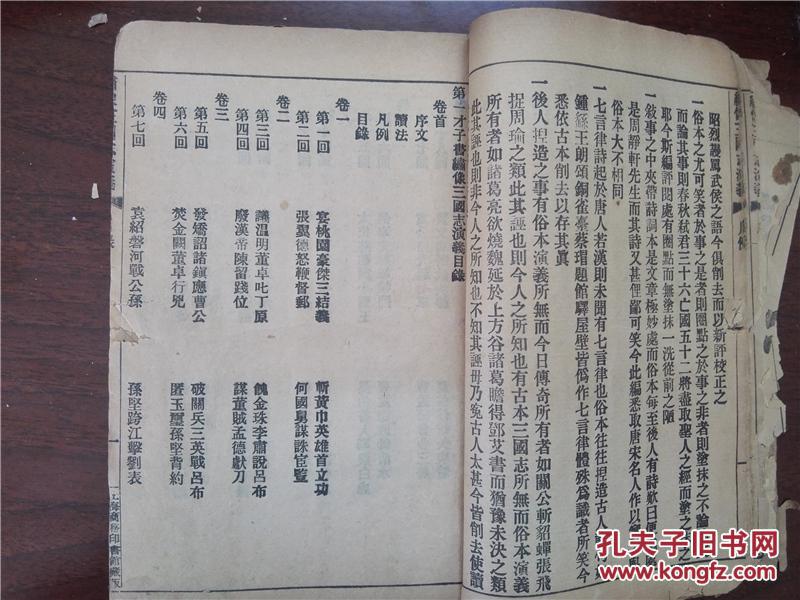 昭烈謾罵武侯之語今俱削去而以新評校正之
一俗本之尤可笑者於事之是者則圈點之於事之非者則塗抹之不論
而論其事則春秋弑君三十六亡國五十二將盡取聖人之經而塗之
耶今斯編評閱處有圈點而無塗抹一洗從前之陋
一敍事之中夾帶詩詞本是文章極妙處而俗本每至後人有詩歎曰便
是周靜軒先生而其詩又甚俚鄙可笑今此編悉取唐宋名人作以
俗本大不相同
一七言律詩起於唐人若漢則未聞有七言律也俗本往往捏造古人
鍾繇王朗頌銅雀臺蔡瑁題館驛屋壁皆僞作七言律體殊爲識者所笑今
悉依古本削去以存其眞
一後人捏造之事有俗本演義所無而今日傳奇所有者如關公斬貂蟬張飛
捉周瑜之類此其誣也則今人之所知也有古本三國志所無而俗本演義
所有者如諸葛亮欲燒魏延於上方谷諸葛瞻得鄧艾書而猶豫未決之類
此其誣也則非今人之所知也不知其誣毋乃寃古人太甚今皆削去使讀
第一才子書繡像三國志演義目錄
卷首
序文
讀法
凡例
目錄
卷一
第一回 宴桃園豪傑三結義 斬黃巾英雄首立功
第二回 張翼德怒鞭督郵 何國舅謀誅宦豎
卷二
第三回 議溫明董卓叱丁原 餽金珠李肅說呂布
第四回 廢漢帝陳留踐位 謀董賊孟德獻刀
卷三
第五回 發矯詔諸鎮應曹公 破關兵三英戰呂布
第六回 焚金闕董卓行兇 匿玉璽孫堅背約
卷四
第七回 袁紹磐河戰公孫 孫堅跨江擊劉表
一
上海商務印書館藏版
孔夫子旧书网
www.kongfz.com